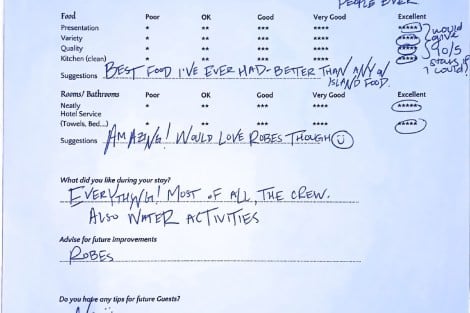 PEOPLE EVER
Food Poor OK Good Very Good Excellent
Presentation * ** *** **** *****
Variety * ** *** **** *****
Quality * ** *** **** *****
Kitchen (clean) * ** *** **** *****
would
give
90/5
stars if
I could!
Suggestions BEST FOOD I'VE EVER HAD - BETTER THAN ANY ON
ISLAND FOOD.
Rooms/ Bathrooms Poor OK Good Very Good Excellent
Neatly * ** *** **** *****
Hotel Service
(Towels, Bed...) * ** *** **** *****
Suggestions AMAZING! WOULD LOVE ROBES THOUGH
What did you like during your stay?
EVERYTHING! MOST OF ALL, THE CREW.
ALSO WATER ACTIVITIES
Advise for future improvements
ROBES
Do you hape any tips for future Guests?